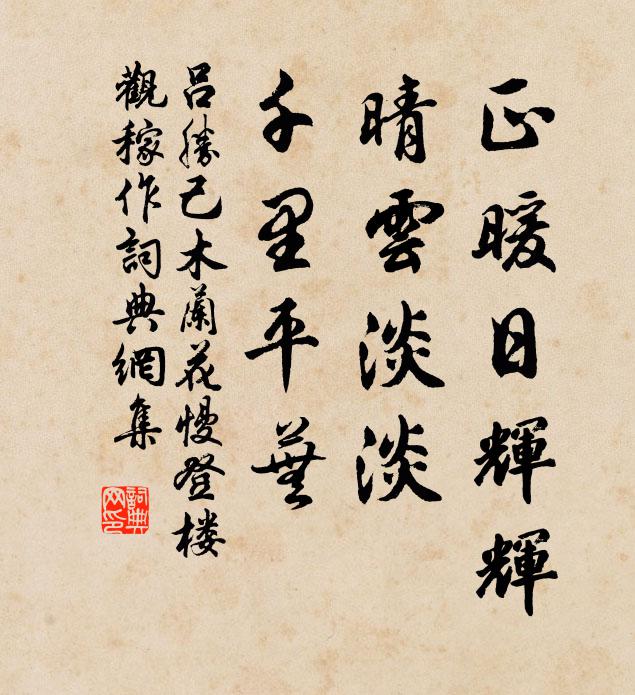 正暖日輝輝
晴雲淡淡
千里平蕪
呂勝己木蘭花慢登楼
觀稼作詞典網集
詞典网印